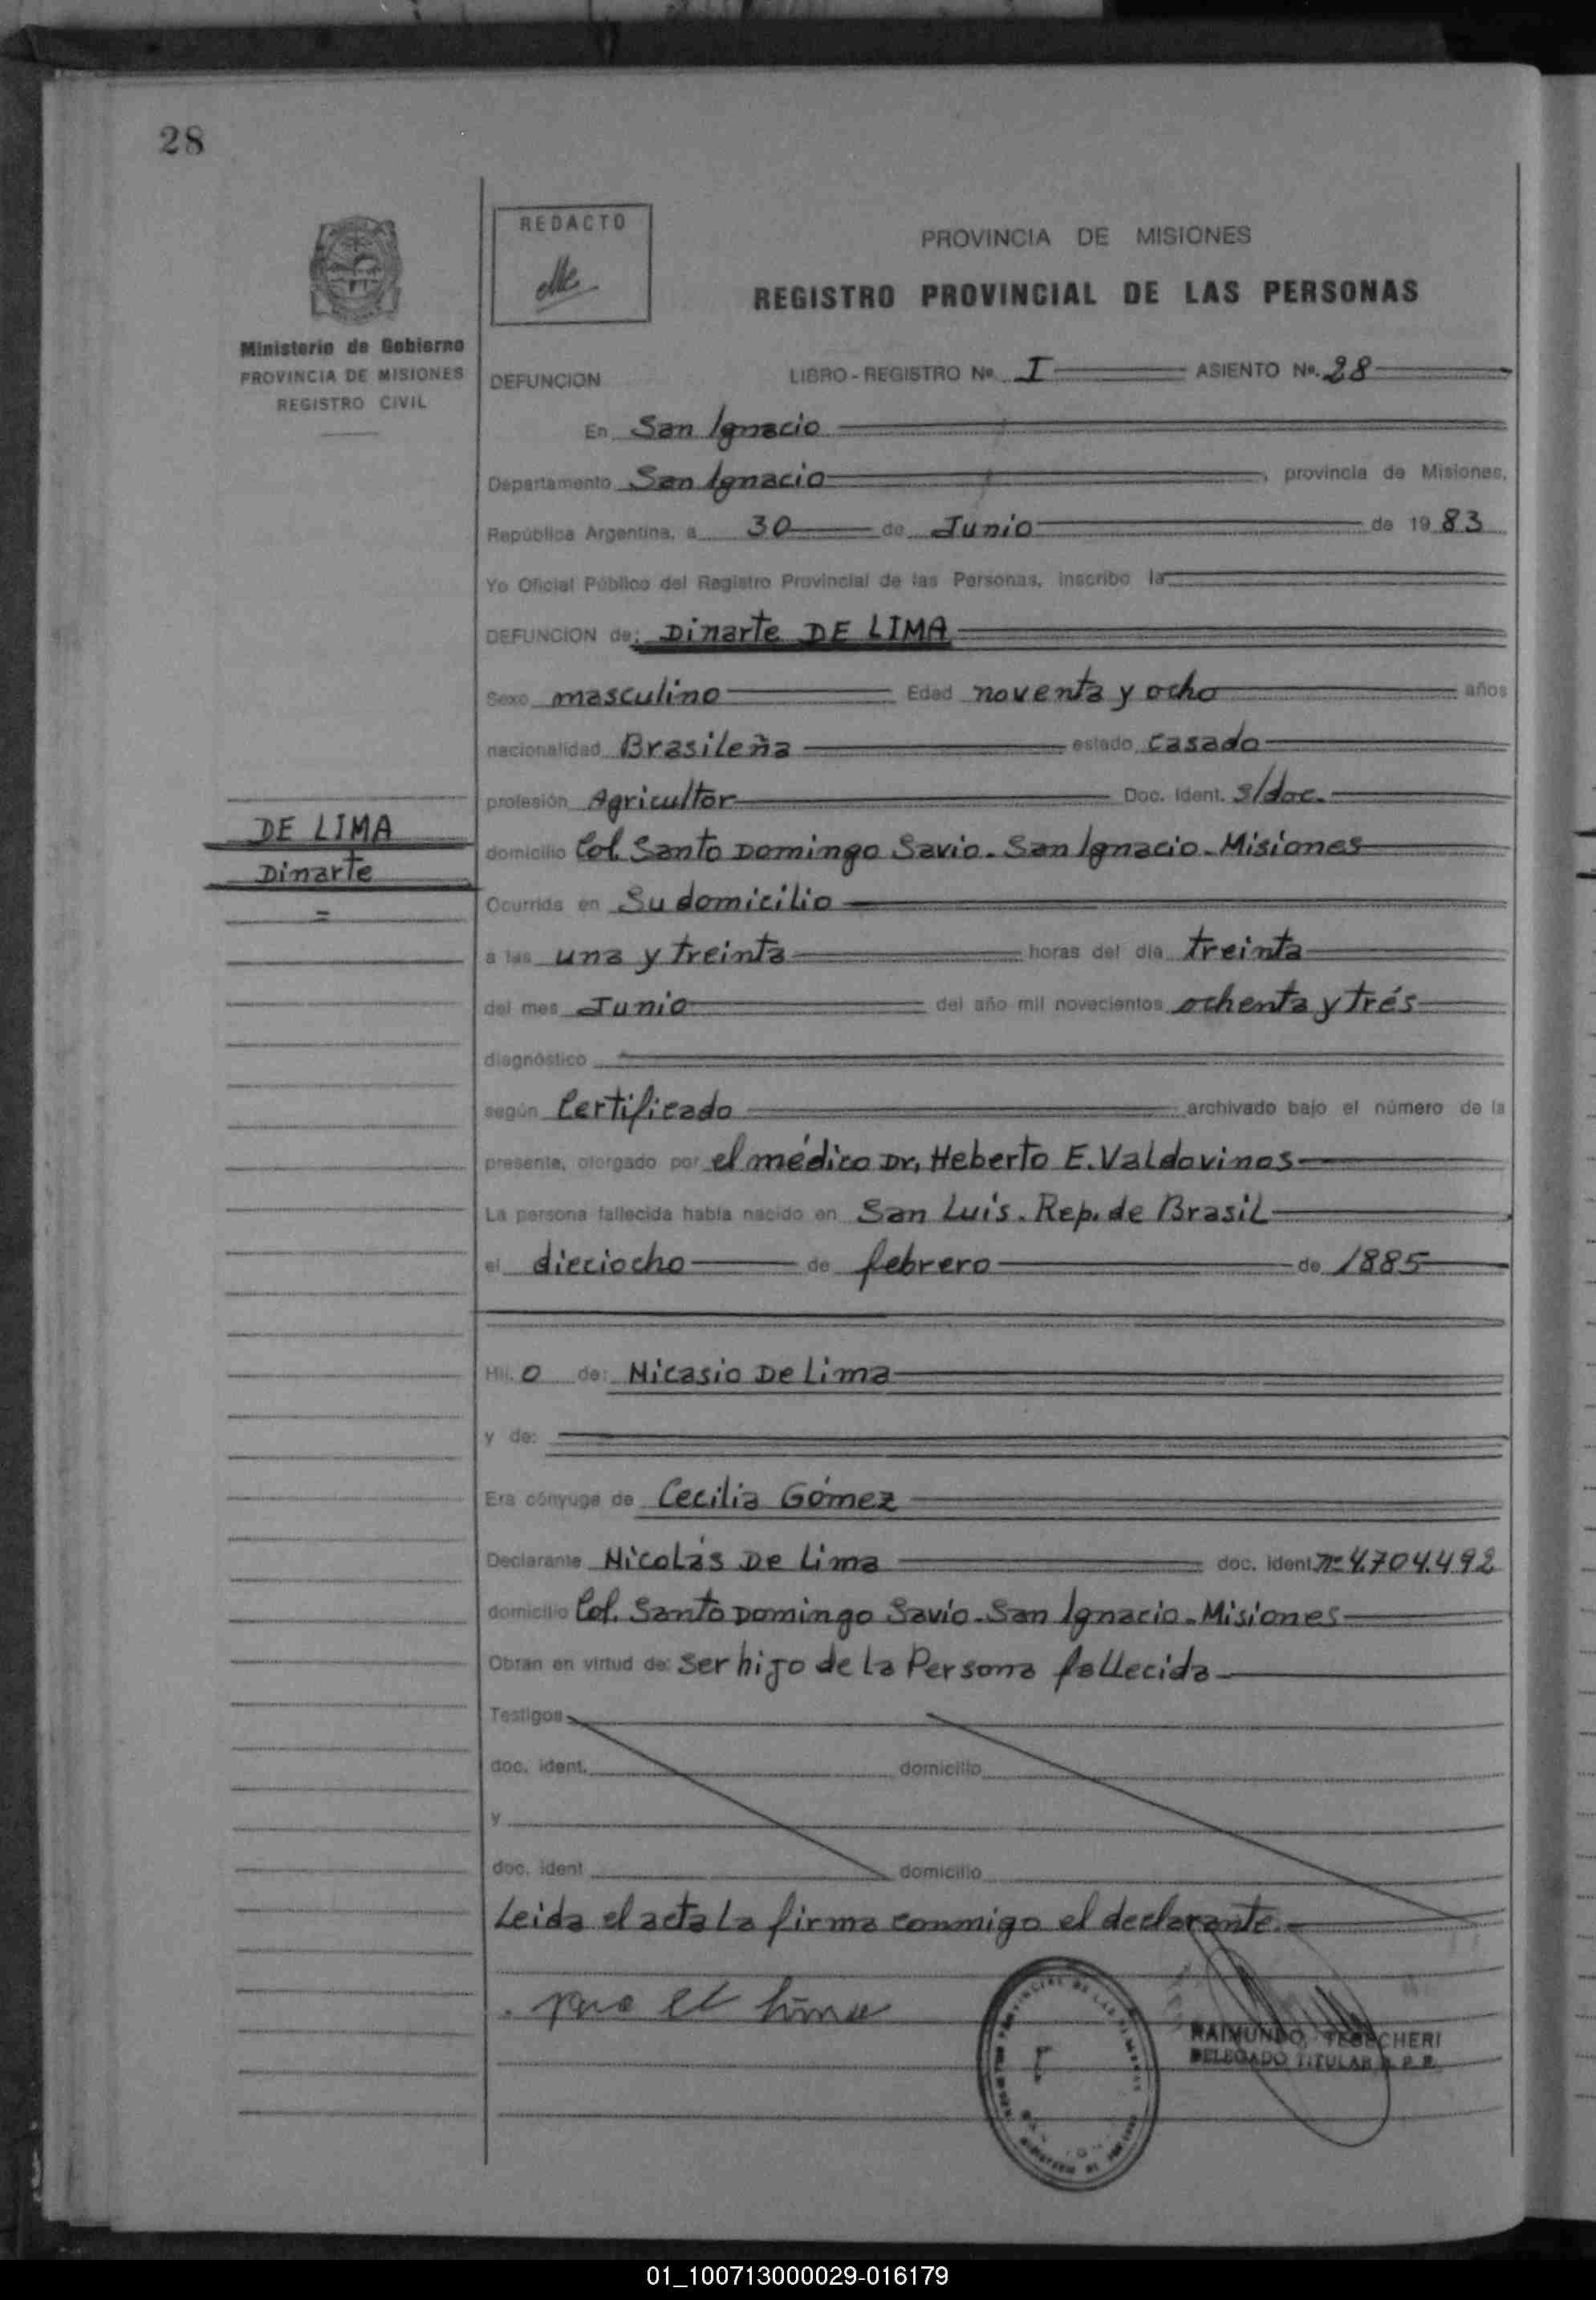 28
REDACTO
Ministerio de Gobierno
PROVINCIA DE MISIONES
REGISTRO CIVIL
PROVINCIA DE MISIONES
REGISTRO PROVINCIAL DE LAS PERSONAS
DEFUNCION LIBRO - REGISTRO Nº I ASIENTO Nº. 28
En San Ignacio
Departamento San Ignacio, provincia de Misiones,
República Argentina, a 30 de Junio de 1983
Yo Oficial Público del Registro Provincial de las Personas, inscribo la
DEFUNCION de: Dinarte DE LIMA
Sexo masculino Edad noventa y ocho años
nacionalidad Brasileña estado Casado
profesión Agricultor Doc. Ident. s/doc.
DE LIMA
Dinarte
=
domicilio Col. Santo Domingo Savio - San Ignacio - Misiones
Ocurrida en Su domicilio
a las una y treinta horas del día treinta
del mes Junio del año mil novecientos ochenta y trés
diagnóstico
según Certificado archivado bajo el número de la
presente, otorgado por el médico Dr. Heberto E. Valdovinos
La persona fallecida había nacido en San Luis. Rep. de Brasil
el dieciocho de febrero de 1885
Hij. o de: Nicasio De Lima
y de:
Era cónyuge de Cecilia Gómez
Declarante Nicolás De Lima doc. ident. nº 4.704.492
domicilio Col. Santo Domingo Savio - San Ignacio - Misiones
Obran en virtud de: ser hijo de la Persona fallecida
Testigos
doc. ident. domicilio
y
doc. ident domicilio
Leida el acta La firma conmigo el declarante.
RAIMUNDO
DELEGADO TITULAR R. P. P.
01_100713000029-016179